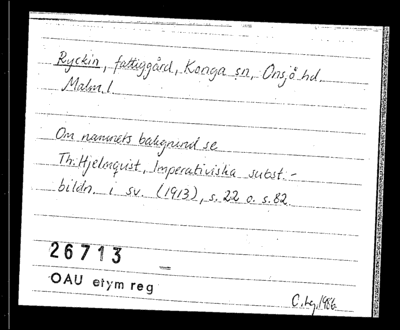 Ryckin, fattiggård, Konga sn, Onsjö hd
Malm. l.
Om namnets bakgrund se
Th. Hjelmqvist, Imperativiska subst.-
bildn. i sv. (1913), s. 22 o. s. 82
26713
OAU etym reg
1986